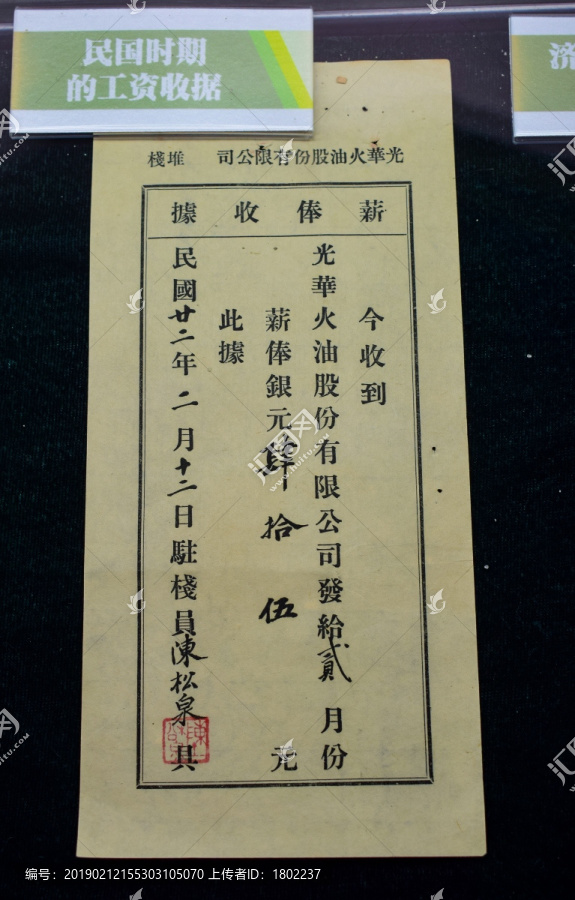 民国时期
的工资收据
济
光華火油股份有限公司 堆棧
薪俸收據
今收到
光華火油股份有限公司發給貳月份
薪俸銀元肆拾伍元
此據
民國廿二年二月十二日駐棧員陳松泉具
编号：20190212155303105070 上传者ID：1802237
汇图网
www.huitu.com